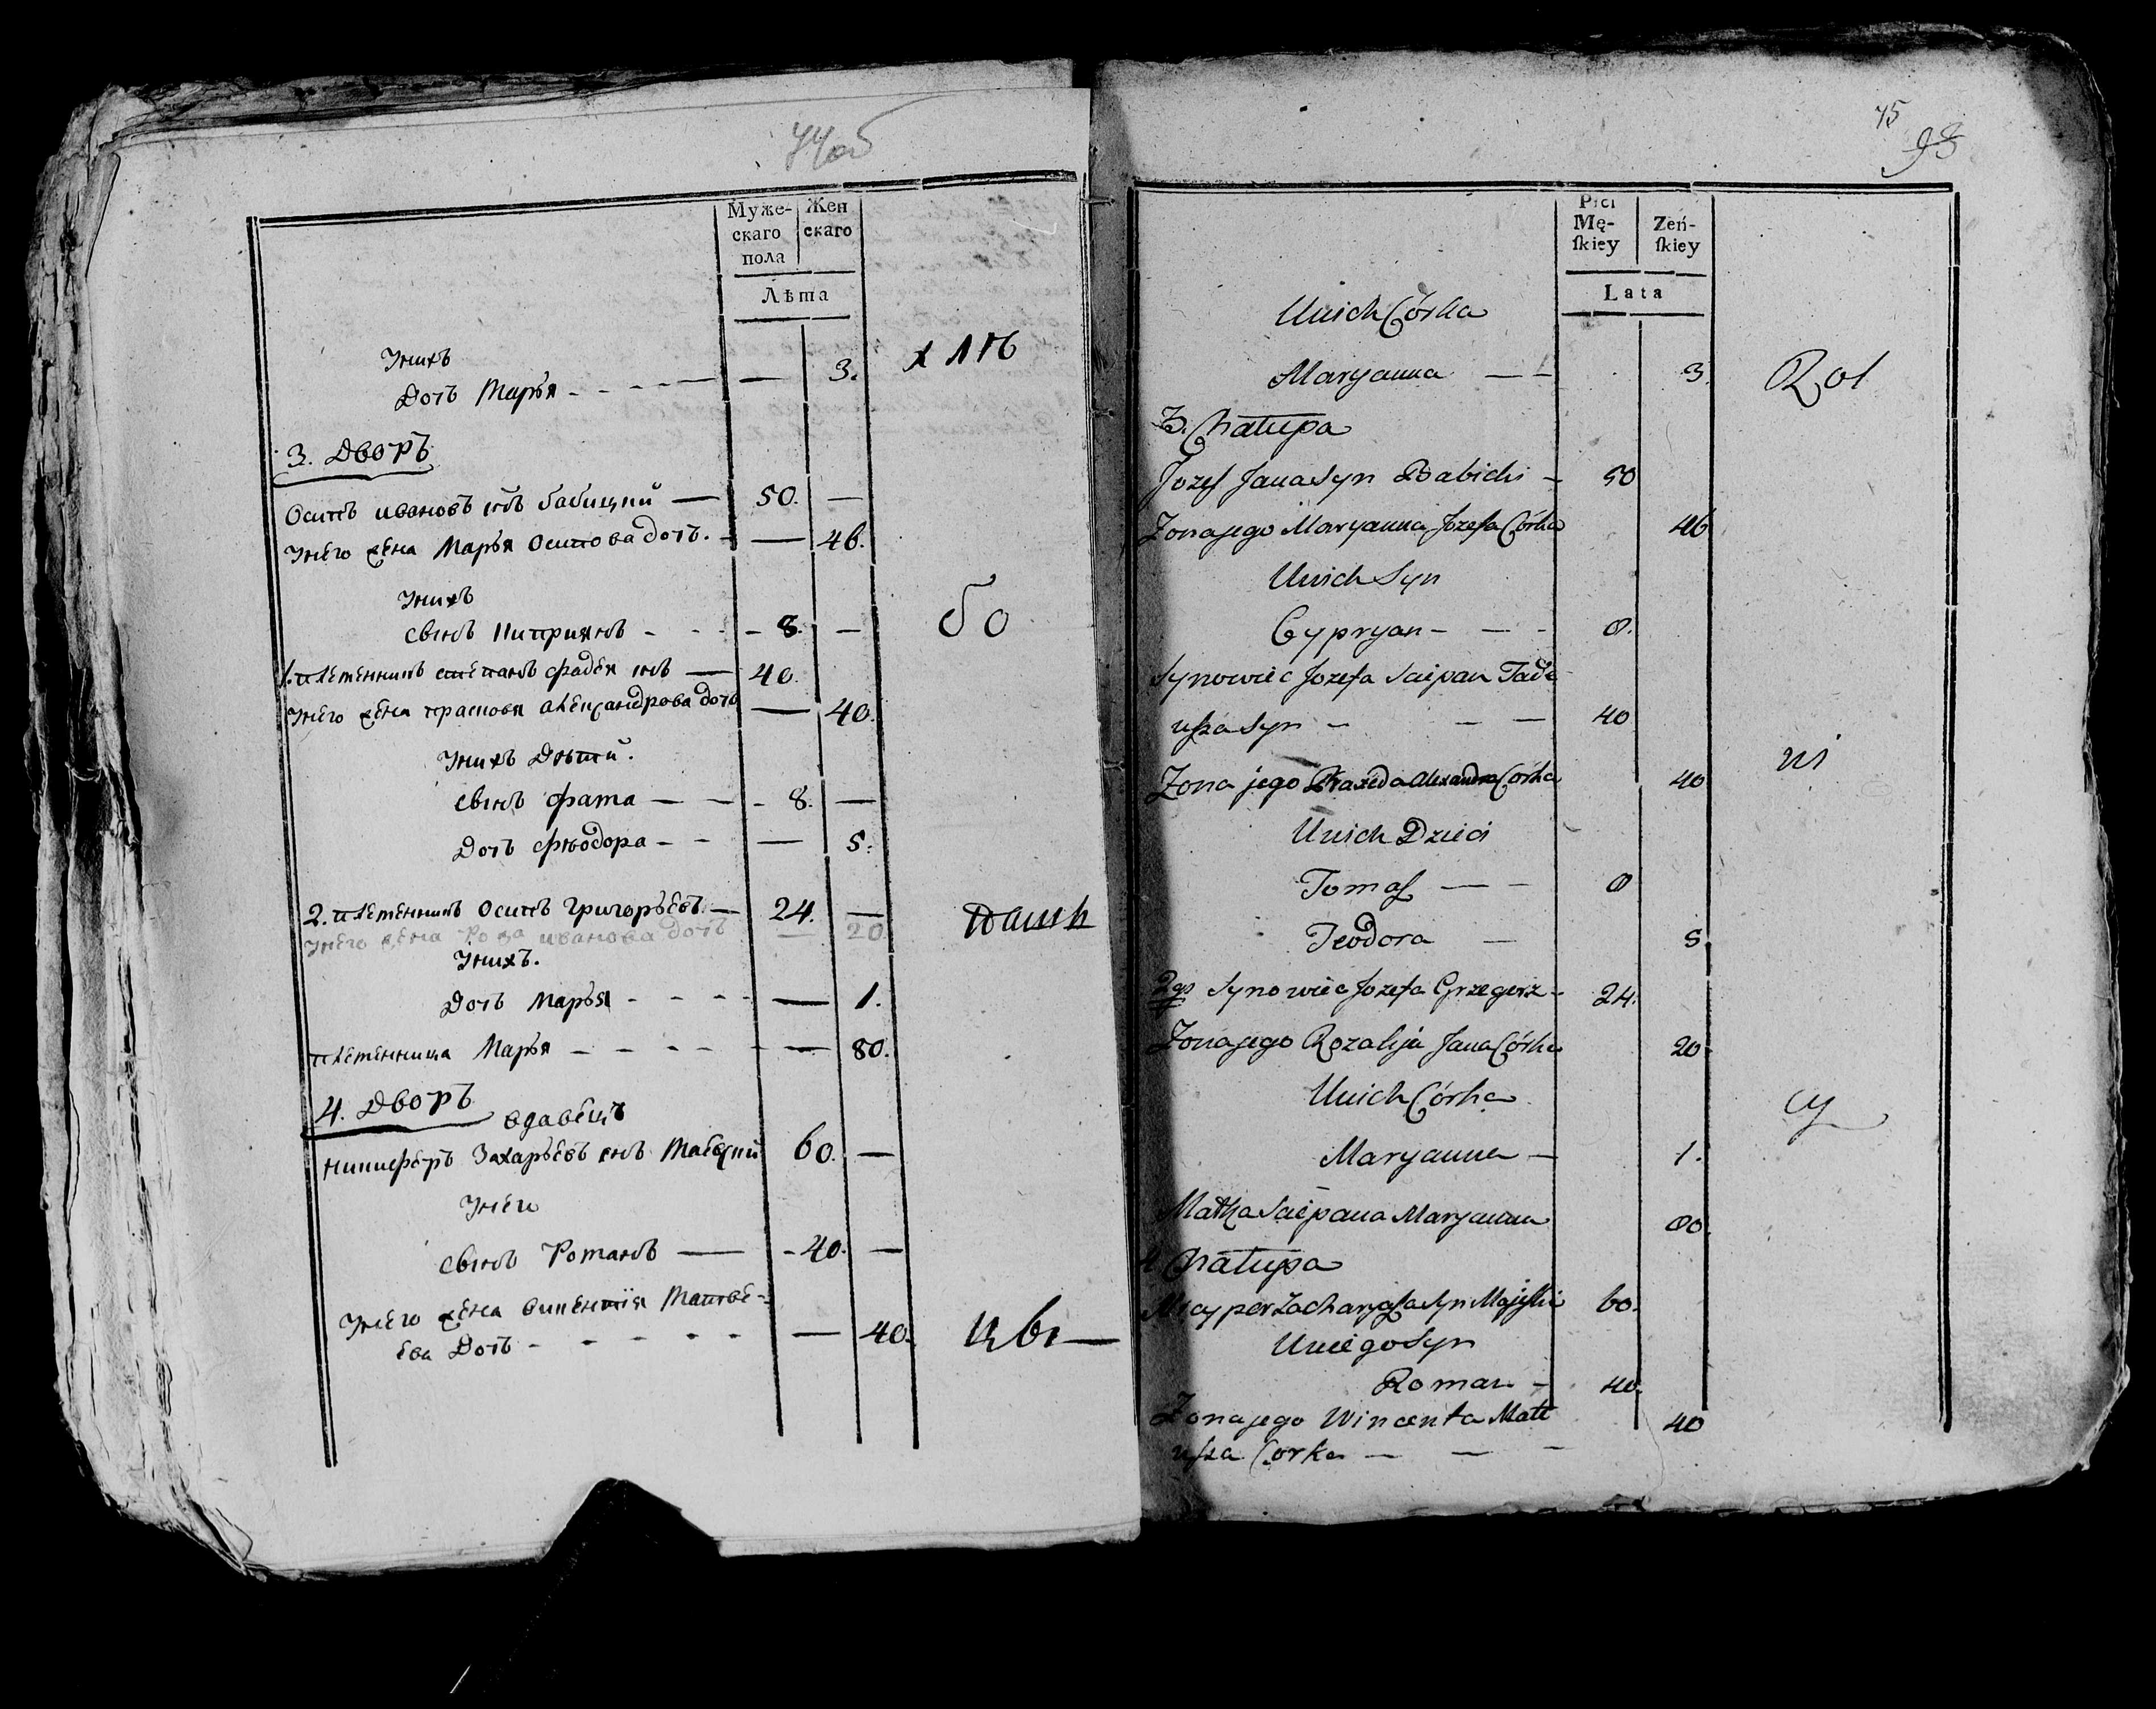 74об
Муже-
скаго
пола
Жен
скаго
Лѣта
Унихъ
Дочь Марья - - - - — — 3.
хлѣб
3. Дворъ
Осипъ ивановъ снъ бабицкий — 50. —
Унего жена Марья Осипова дочь. - — 46.
Унихъ
сынъ Киприянъ - - - 8. —
бо
1. племенникъ степанъ фадея снъ — 40.
Унего жена праксовя александрова дочь — 40.
Унихъ Дѣтий.
сынъ фама — — - 8. —
Дочь фѣодора - - — 5.
2. племенникъ Осипъ Григорьевъ. — 24. —
Унего жена Роза иванова дочь — 20
пашн
Унихъ.
Дочь Марья - - - - — 1.
племенница Марья - - - - - — 80.
4. Дворъ
вдавецъ
никиферъ Захарьевъ снъ Маевский 60. —
Унего
сынъ Романъ — - 40. —
Унего жена викентия Матвѣ-
ева Дочь - - - - - — 40.
цы—
75
98
Płci
Mę-
ſkiey
Zeń-
ſkiey
Lata
Unich Córka
Maryanna — — 3.
Rol
3. Chałupa
Jozef Jana Syn Babicki - 50
Zona jego Maryanna Jozefa Córka 46
Unich Syn
Cypryan - — - 8.
Synowiec Jozefa Sciepan Tade
uſza Syn - — — 40
ni
Zona jego Praxeda Alexandra Córka 40
Unich Dzieci
Tomaſz — - 8
Teodora — 5.
2go Synowiec Jozefa Grzegorz - 24.
Zona jego Rozalija Jana Córka 20
Unich Córka
cy
Maryanna — 1.
Matka Sciepana Maryanna 80.
4 Chałupa
Nicyper Zacharyaſza Syn Majeſki 60.
Uniego Syn
Roman - 40.
Zona jego Wincenta Mate
uſza Corka — — — 40